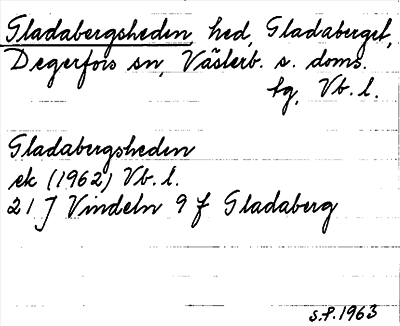 Gladabergsheden, hed, Gladaberget,
Degerfors sn, Västerb. s. doms.
tg, Vb. l.
Gladabergsheden
ek (1962) Vb. l.
21 J Vindeln 9 f Gladaberg
S.P. 1963